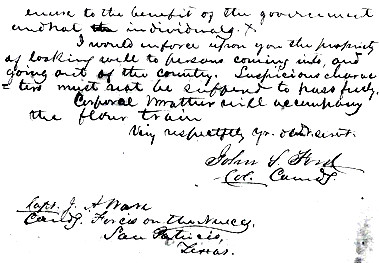 enure to the benefit of the government
and not the individuals. X
I would enforce upon you the propriety
of looking well to persons coming into, and
going out of the country. Suspicious charac
ters must not be suffered to pass freely.
Corporal will accompany
the flour train
Very respectfully yr. obdt. servt.
John S. Ford
Col. Comdg.
Capt. J. A. Ware
Comdg. Forces on the Nueces
San Patricio,
Texas.